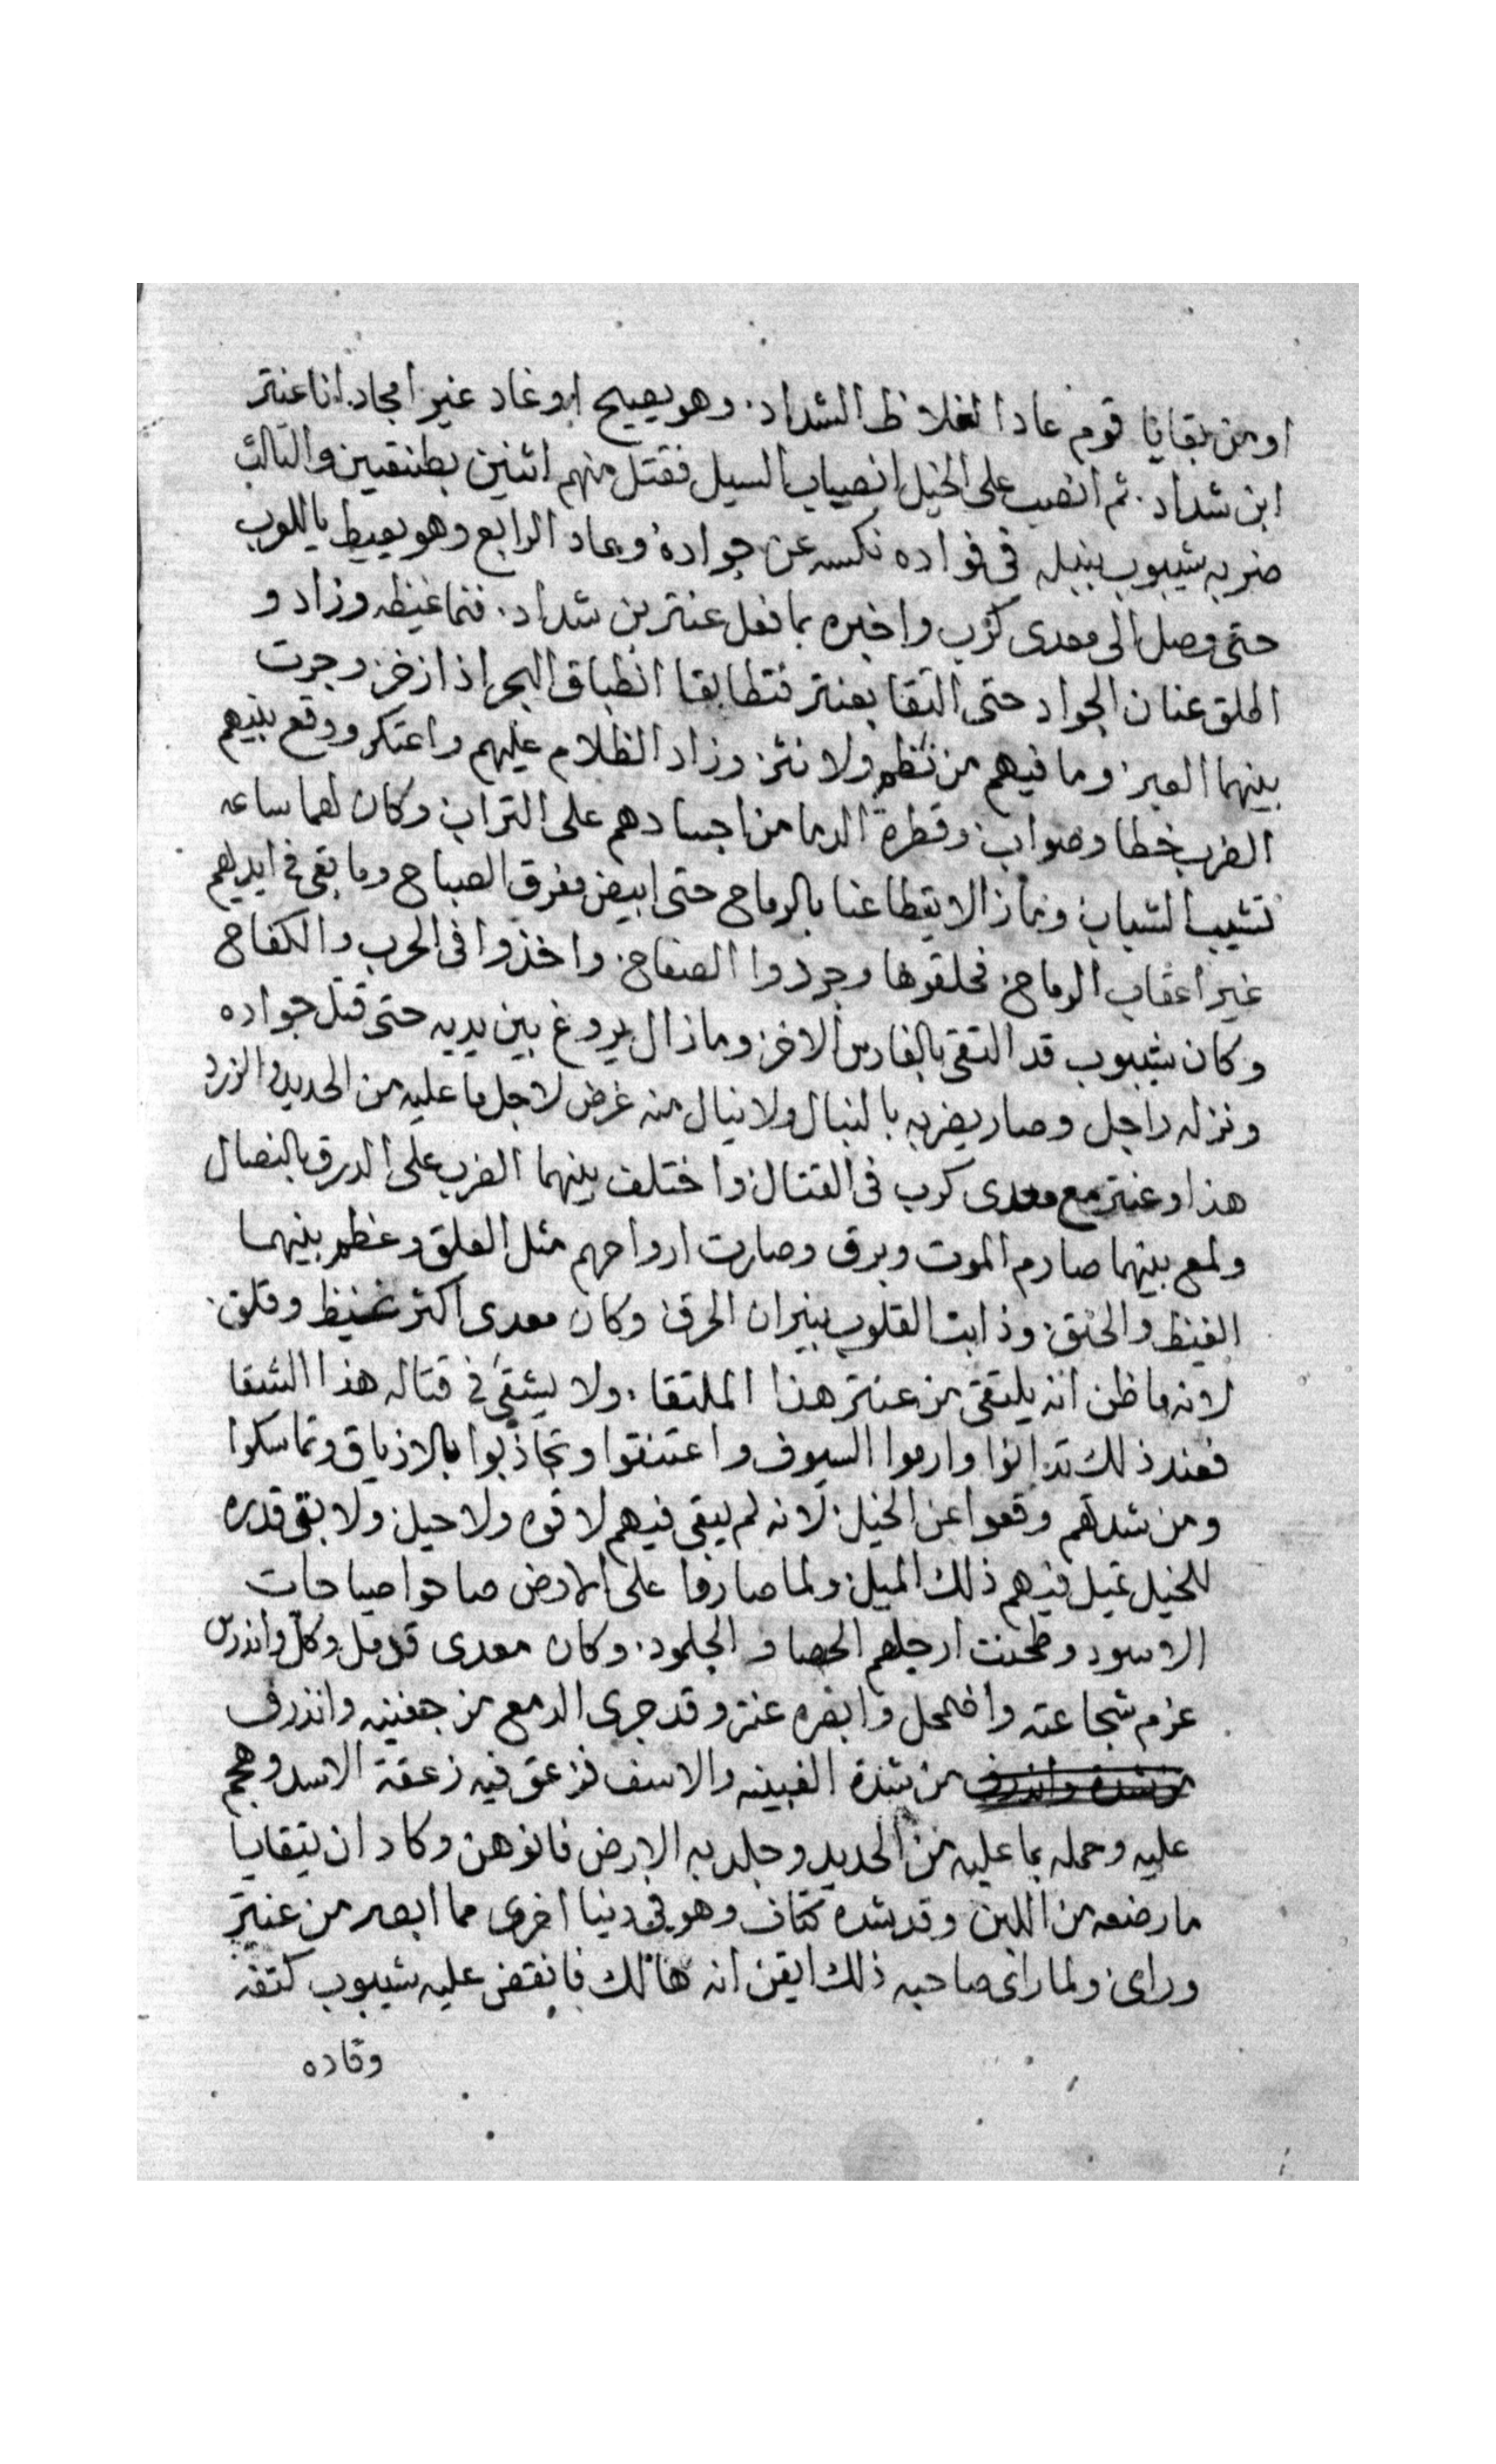 او من بقايا قوم عاد الغلاظ الشداد. وهو يصيح اوغاد غير امجاد. انا عنتر
ابن شداد. ثم انصب على الخيل انصباب السيل فقتل منهم اثنين بطنتين والثالث
ضربه شيبوب بنبله فى فواده نكسه عن جواده وعاد الرابع وهو يعيط ياللعرب
حتى وصل الى معدى كرب واخبره بما فعل عنتر بن شداد. فنما غيظه وزاد و
اطلق عنان الجواد حتى التقا بعنتر فتطابقا انطباق البحر اذا زخر وجرت
بينهما العبر وما فيهم من نظم ولا نثر وزاد الظلام عليهم واعتكر ووقع بينهم
الضرب خطا وصواب وقطرة الدما من اجسادهم على التراب وكان لهما ساعه
تشيب الشباب وما زالا يتطاعنا بالرماح حتى ابيض مفرق الصباح وما بقى فى ايديهم
غير اعقاب الرماح. فحلقوها وجردوا الصفاح. واخذوا فى الحرب والكفاح
وكان شيبوب قد التقى بالفارس الاخر وما زال يروغ بين يديه حتى قتل جواده
ونزله راجل وصار يضربه بالنبال ولا ينال منه غرض لاجل ما عليه من الحديد والزرد
هذا وعنتر مع معدى كرب فى القتال واختلف بينهما الضرب على الدرق بالنصال
ولمع بينهما صارم الموت وبرق وصارت ارواحهم مثل العلق وعظم بينهما
الغيظ والحنق. وذابت القلوب بنيران الحرق وكان معدى اكثر غيظ وقلق.
لانه ما ظن انه يلتقى من عنتر هذا الملتقا. ولا يشقى فى قتاله هذا الشقا
فعند ذلك تدانوا وارموا السيوف واعتنقوا وتجاذبوا بالازياق وتماسكوا
ومن شدتهم وقعوا عن الخيل. لانه لم يبقى فيهم لا قوه ولا حيل ولا بقى قدره
للخيل تميل فيهم ذلك الميل ولما صاروا على الارض صاحوا صياحات
الاسود وطحنت ارجلهم الحصا والجلمود. وكان معدى قد مل وكل واندرس
عزم شجاعته واضمحل وابصره عنتر وقد جرى الدمع من جفنيه وانذرف
من شدة الغبينه والاسف فزعق فيه زعقة الاسد وهجم
عليه وحمله بما عليه من الحديد وجلد به الارض فانوهن وكاد ان يتقايا
ما رضعه من اللبن وقد شده كتاف وهو فى دنيا اخرى مما ابصر من عنتر
وراى ولما راى صاحبه ذلك ايقن انه هالك فانقض عليه شيبوب كتفه
وقاده